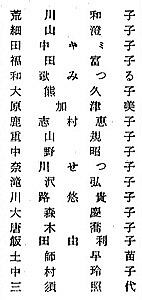 荒川和子
細山澄子
田中キミ子
福田富子
和歌みつる
大熊久子
原加津美
鹿志村恵子
重山規子
中野昭子
奈川せつ子
滝沢弘子
川路悠貴子
大森慶子
唐木喬子
飯田由利子
土師苗子
中村早玲子
三須照代